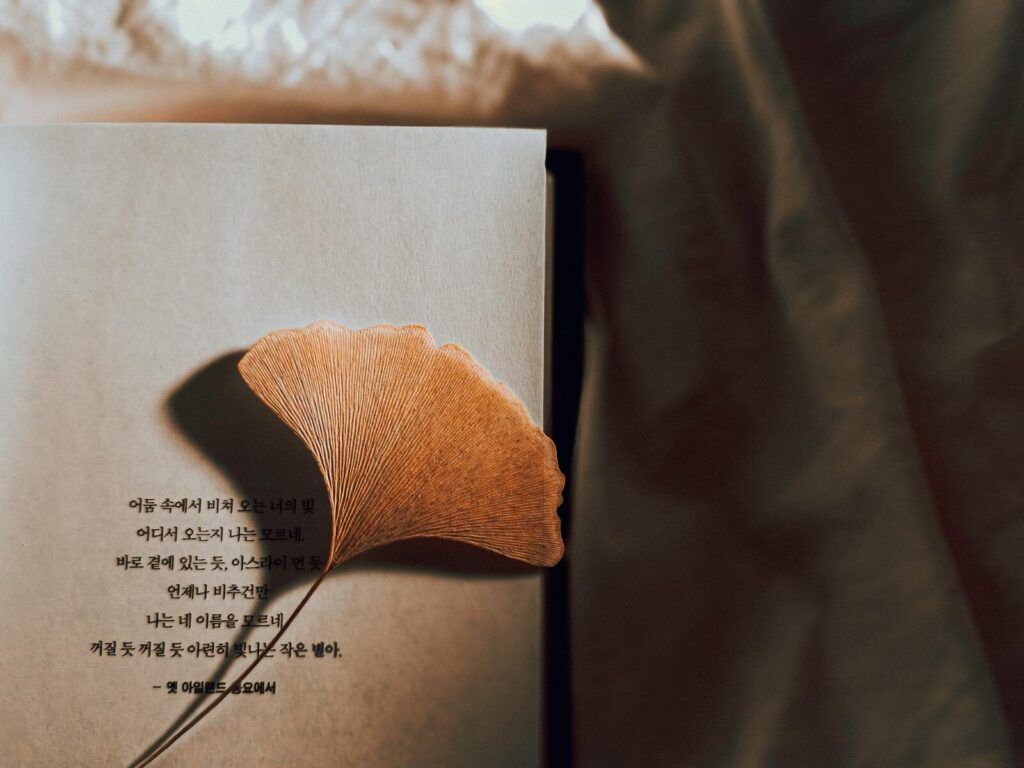 어둠 속에서 비쳐 오는 너의 빛
어디서 오는지 나는 모르네.
바로 곁에 있는 듯, 아스라이 먼 듯
언제나 비추건만
나는 네 이름을 모르네.
꺼질 듯 꺼질 듯 아련히 빛나는 작은 별아.
– 옛 아일랜드 동요에서